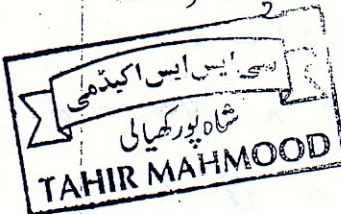 سی ایس ایس اکیڈمی
شاہ پور کھیالی
TAHIR MAHMOOD